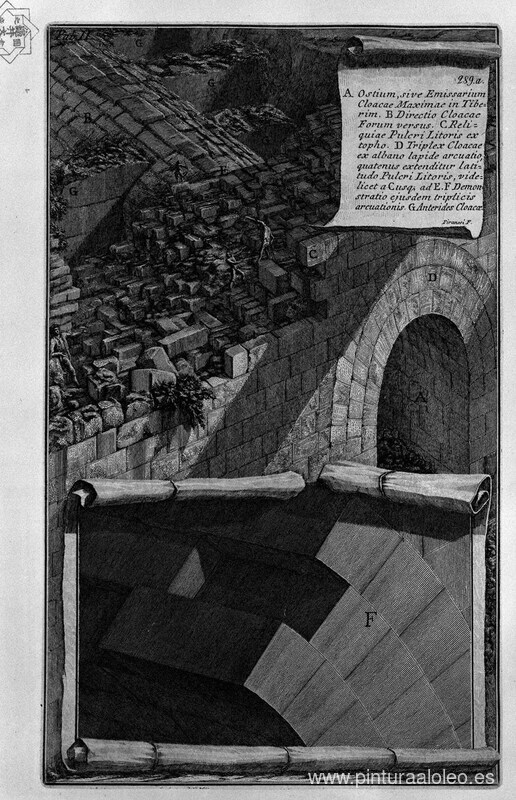 Tab. II
289.a
A. Ostium, sive Emissarium
Cloacae Maximae in Tibe=
rim. B Directio Cloacae
Forum versus. C. Reli=
quiae Pulcri Litoris ex
topho. D Triplex Cloacae
ex albano lapide arcuatio,
quatenus extenditur lati=
tudo Pulcri Litoris, vide=
licet a C usq. ad E. F Demon=
stratio ejusdem triplicis
arcuationis. G Anterides Cloacae
Piranesi F.
G
G
B
G
C
D
A
F
www.pinturaaloleo.es